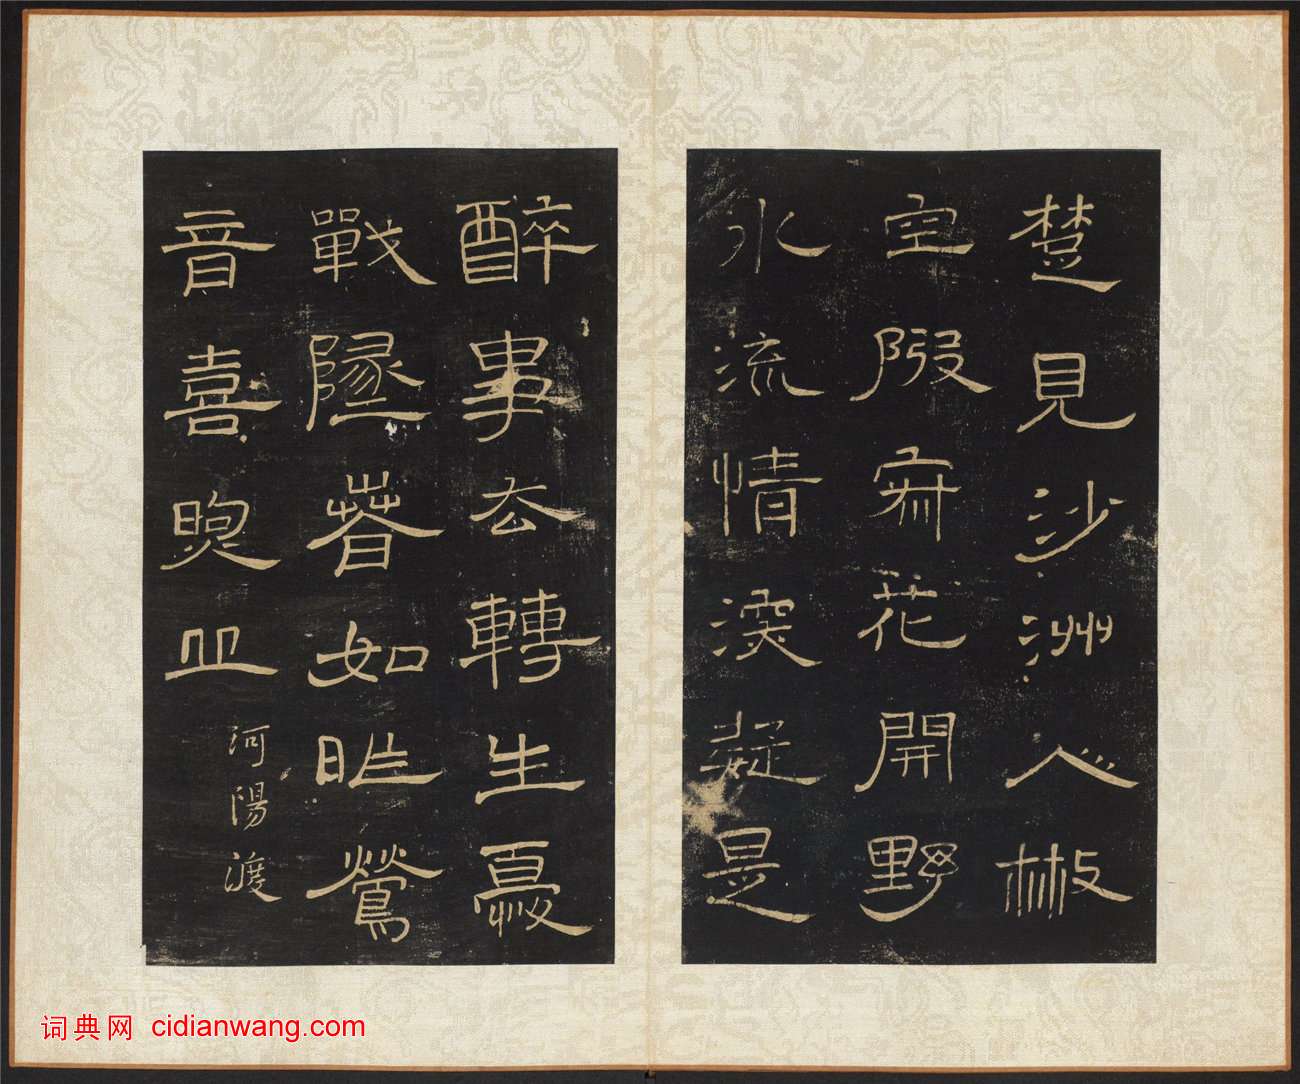 楚見沙洲人散
空花開野
水流情深疑是
醉事去轉生憂
戰墜萅如昨鶯
音喜
河陽渡
词典网 cidianwang.com